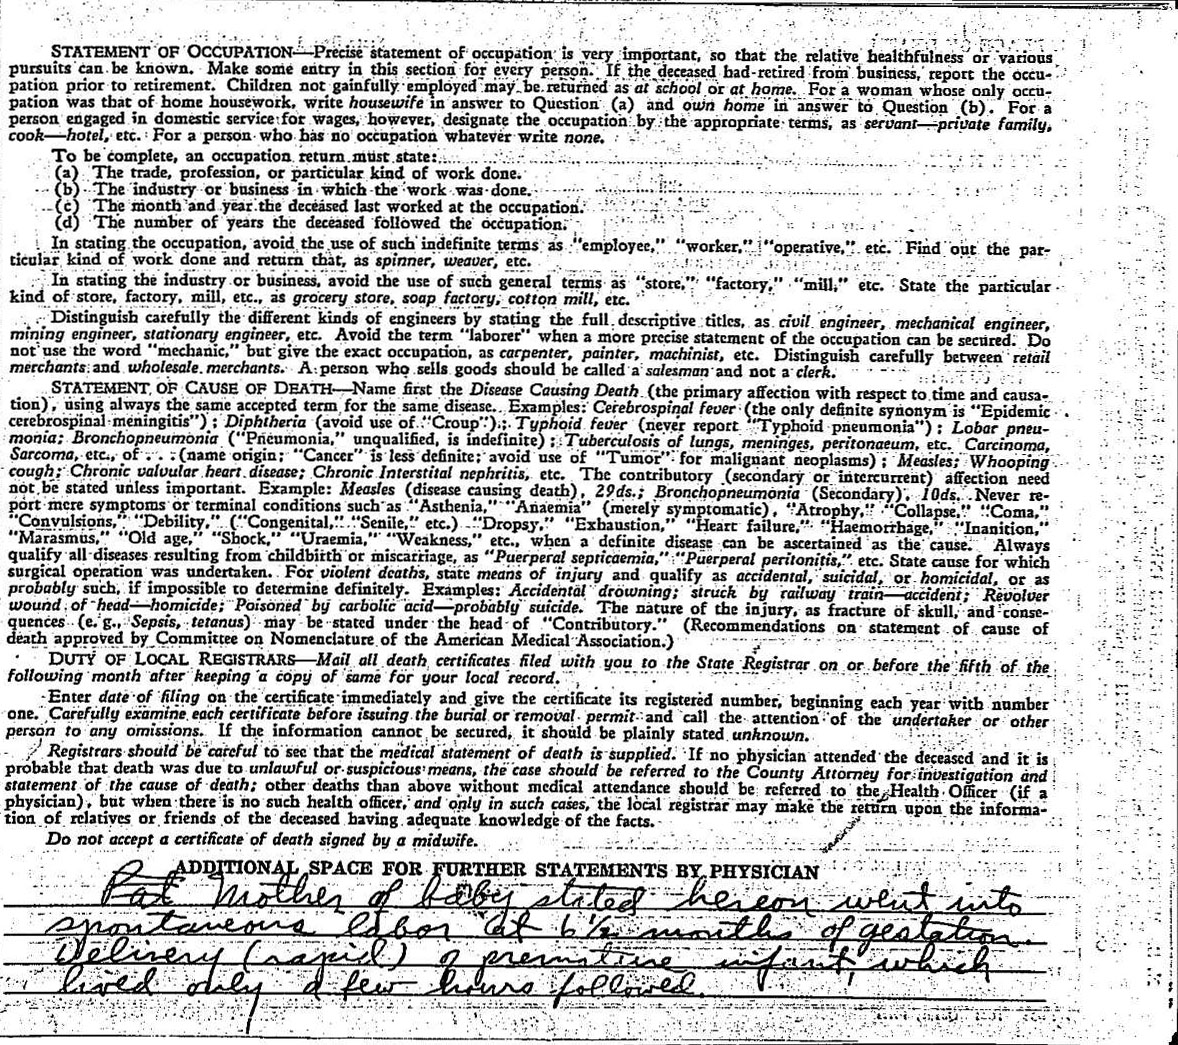 STATEMENT OF OCCUPATION—Precise statement of occupation is very important, so that the relative healthfulness or various
pursuits can be known. Make some entry in this section for every person. If the deceased had retired from business, report the occu-
pation prior to retirement. Children not gainfully employed may be returned as at school or at home. For a woman whose only occu-
pation was that of home housework, write housewife in answer to Question (a) and own home in answer to Question (b). For a
person engaged in domestic service for wages, however, designate the occupation by the appropriate terms, as servant—private family,
cook—hotel, etc. For a person who has no occupation whatever write none.
To be complete, an occupation return must state:
(a) The trade, profession, or particular kind of work done.
(b) The industry or business in which the work was done.
(c) The month and year the deceased last worked at the occupation.
(d) The number of years the deceased followed the occupation.
In stating the occupation, avoid the use of such indefinite terms as "employee," "worker," "operative," etc. Find out the par-
ticular kind of work done and return that, as spinner, weaver, etc.
In stating the industry or business, avoid the use of such general terms as "store," "factory," "mill," etc. State the particular
kind of store, factory, mill, etc., as grocery store, soap factory, cotton mill, etc.
Distinguish carefully the different kinds of engineers by stating the full descriptive titles, as civil engineer, mechanical engineer,
mining engineer, stationary engineer, etc. Avoid the term "laborer" when a more precise statement of the occupation can be secured. Do
not use the word "mechanic," but give the exact occupation, as carpenter, painter, machinist, etc. Distinguish carefully between retail
merchants and wholesale merchants. A person who sells goods should be called a salesman and not a clerk.
STATEMENT OF CAUSE OF DEATH—Name first the Disease Causing Death (the primary affection with respect to time and causa-
tion), using always the same accepted term for the same disease. Examples: Cerebrospinal fever (the only definite synonym is "Epidemic
cerebrospinal meningitis"); Diphtheria (avoid use of "Croup"); Typhoid fever (never report "Typhoid pneumonia"); Lobar pneu-
monia; Bronchopneumonia ("Pneumonia," unqualified, is indefinite); Tuberculosis of lungs, meninges, peritonaeum, etc. Carcinoma,
Sarcoma, etc., of . . . (name origin; "Cancer" is less definite; avoid use of "Tumor" for malignant neoplasms); Measles; Whooping
cough; Chronic valvular heart disease; Chronic Interstital nephritis, etc. The contributory (secondary or intercurrent) affection need
not be stated unless important. Example: Measles (disease causing death), 29ds.; Bronchopneumonia (Secondary), 10ds. Never re-
port mere symptoms or terminal conditions such as "Asthenia," "Anaemia" (merely symptomatic), "Atrophy," "Collapse," "Coma,"
"Convulsions," "Debility," ("Congenital," "Senile," etc.) "Dropsy," "Exhaustion," "Heart failure," "Haemorrhage," "Inanition,"
"Marasmus," "Old age," "Shock," "Uraemia," "Weakness," etc., when a definite disease can be ascertained as the cause. Always
qualify all diseases resulting from childbirth or miscarriage, as "Puerperal septicaemia," "Puerperal peritonitis," etc. State cause for which
surgical operation was undertaken. For violent deaths, state means of injury and qualify as accidental, suicidal, or homicidal, or as
probably such, if impossible to determine definitely. Examples: Accidental drowning; struck by railway train—accident; Revolver
wound of head—homicide; Poisoned by carbolic acid—probably suicide. The nature of the injury, as fracture of skull, and conse-
quences (e. g., Sepsis, tetanus) may be stated under the head of "Contributory." (Recommendations on statement of cause of
death approved by Committee on Nomenclature of the American Medical Association.)
DUTY OF LOCAL REGISTRARS—Mail all death certificates filed with you to the State Registrar on or before the fifth of the
following month after keeping a copy of same for your local record.
Enter date of filing on the certificate immediately and give the certificate its registered number, beginning each year with number
one. Carefully examine each certificate before issuing the burial or removal permit and call the attention of the undertaker or other
person to any omissions. If the information cannot be secured, it should be plainly stated unknown.
Registrars should be careful to see that the medical statement of death is supplied. If no physician attended the deceased and it is
probable that death was due to unlawful or suspicious means, the case should be referred to the County Attorney for investigation and
statement of the cause of death; other deaths than above without medical attendance should be referred to the Health Officer (if a
physician), but when there is no such health officer, and only in such cases, the local registrar may make the return upon the informa-
tion of relatives or friends of the deceased having adequate knowledge of the facts.
Do not accept a certificate of death signed by a midwife.
ADDITIONAL SPACE FOR FURTHER STATEMENTS BY PHYSICIAN
Mother of baby stated hereon went into
spontaneous labor at 6½ months of gestation.
Delivery (rapid) of premature infant, which
lived only a few hours followed.